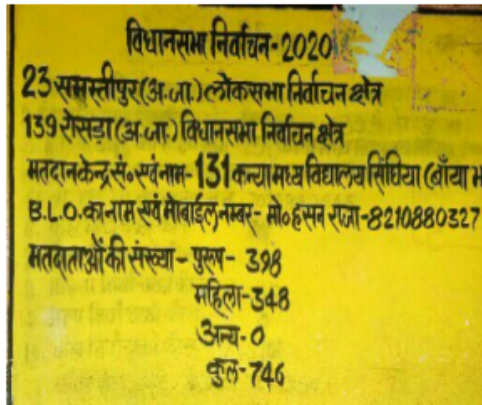 विधानसभा निर्वाचन-2020
23 समस्तीपुर(अ.जा.)लोकसभा निर्वाचन क्षेत्र
139 रोसड़ा(अ.जा.) विधानसभा निर्वाचन क्षेत्र
मतदान केन्द्र सं॰ एवं नाम-131 कन्या मध्य विद्यालय सिंघिया (बाँया भ
B.L.O. का नाम एवं मोबाईल नम्बर- मो॰ हसन राजा-8210880327
मतदाताओं की संख्या- पुरूष- 398
महिला-348
अन्य-0
कुल-746